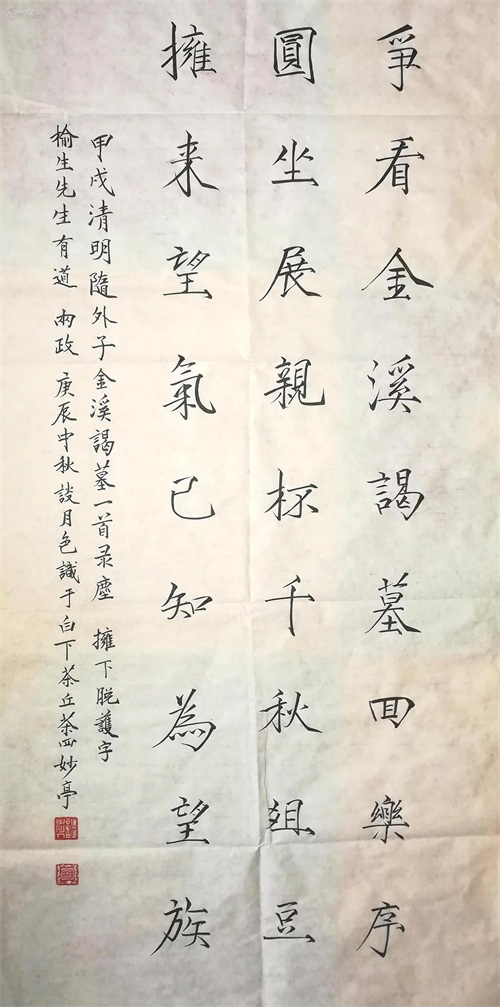 爭看金溪謁墓回樂序
圓坐展親杯千秋俎豆
擁来望氣已知為望族
甲戌清明隨外子金溪謁墓一首录塵 擁下脱護字
榆生先生有道 兩政 庚辰中秋談月色識于白下茶丘茶四妙亭